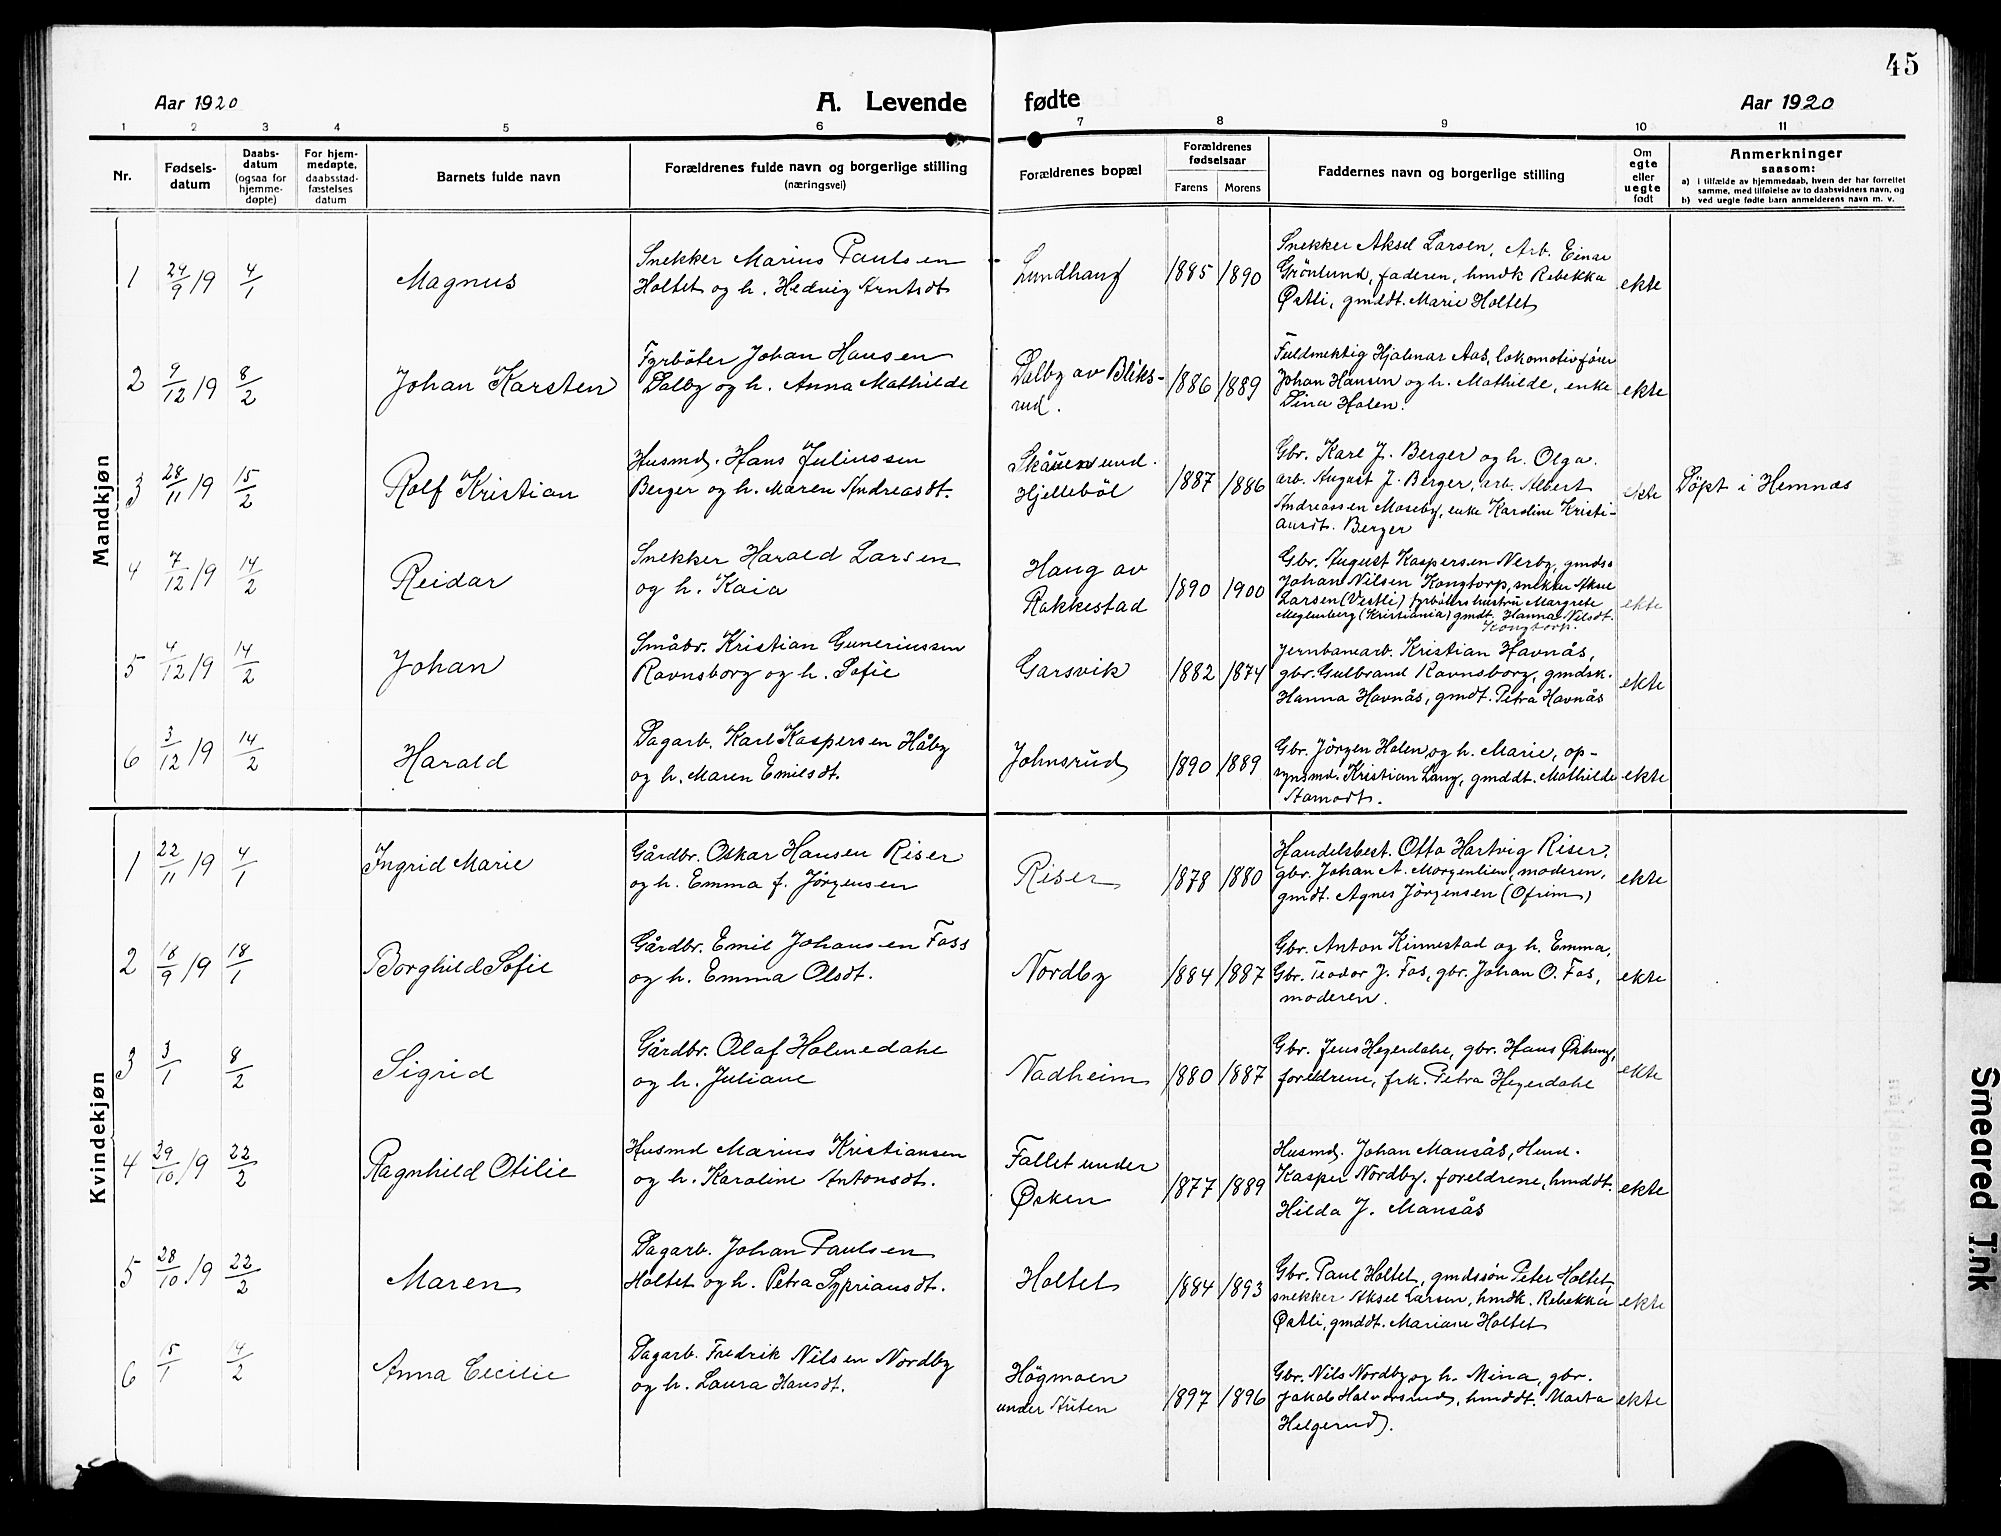 45
Aar 1920
A. Levende fødte
Aar 1920
1 2 3 4 5 6 7 8 9 10 11
Nr.
Fødsels-
datum
Daabs-
datum
(ogsaa for
hjemme-
døpte)
For hjem-
medøpte,
daabsstad-
fæstelses
datum
Barnets fulde navn
Forældrenes fulde navn og borgerlige stilling
(næringsvei)
Forældrenes bopæl
Forældrenes
fødselsaar
Farens Morens
Faddernes navn og borgerlige stilling
Om
egte
eller
uegte
født
Anmerkninger
saasom:
a) i tilfælde av hjemmedaab, hvem der har forrettet
samme, med tilføielse av to daabsvidners navn, og
b) ved uegte fødte barn anmelderens navn m. v.
Mandkjøn
1 24/9 19 4/1 Magnus
Snekker Marius Paulsen
Holtet og h. Hedvig Arntsdt
Lundhaug 1885 1890
Snekker Aksel Larsen, Arb. Einar
Grönlund, faderen, hmdk Rebekka
Østli, gmddt. Marie Holtet
ekte
2 9/12 19 8/2 Johan Karsten
Fyrböter Johan Hansen
Dalby og h. Anna Mathilde
Dalby av Bliks-
rud. 1886 1889
Fuldmektig Hjalmar Aas, lokomotivfører
Johan Hansen og h. Mathilde, enke
Dina Holen.
ekte
3 28/11 19 15/2 Rolf Kristian
Husmd. Hans Juliussen
Berger og h. Maren Andreasdt.
Skåuen und.
Hjelleböl 1887 1886
Gbr. Karl J. Berger og h. Olga.
arb. August J. Berger, arb. Albert
Andreassen Moseby, enke Karoline Kristi-
ansdt. Berger
ekte Döpt i Hemnæs
4 7/12 19 14/2 Reidar
Snekker Harald Larsen
og h. Kaia
Haug av
Rakkestad 1890 1900
Gbr. August Kaspersen Nerby, gmdss
Johan Nilsen Kongtorp, snekker Aksel
Larsen (Vestli) fyrböters hustru Margrete
Meglenberg (Kristiania) gmdt. Hanna Nilsdt.
Kongtorp.
ekte
5 4/12 19 14/2 Johan
Småbr. Kristian Guneriussen
Ravnsborg og h. Sofie
Garsvik 1882 1874
Jernbanearb. Kristian Havnås,
gbr. Gulbrand Ravnsborg, gmdsk.
Hanna Havnås, gmdt. Petra Havnås
ekte
6 3/12 19 14/2 Harald
Dagarb. Karl Kaspersen Håby
og h. Maren Emilsdt.
Johnsrud 1890 1889
Gbr. Jörgen Holen og h. Marie, op-
synsmd. Kristian Lang, gmddt. Mathilde
Stamodt.
ekte
Kvindekjøn
1 22/11 19 4/1 Ingrid Marie
Gårdbr. Oskar Hansen Riser
og h. Emma f. Jörgensen
Riser 1878 1880
Handelsbest. Otto Hartvig Riser,
gbr. Johan A. Morgenlien, moderen,
gmdt. Agnes Jörgensen (Ofrim)
ekte
2 18/9 19 18/1 Borghild Sofie
Gårdbr. Emil Johansen Foss
og h. Emma Olsdt.
Nordby 1884 1887
Gbr. Anton Kinnestad og h. Emma,
Gbr. Teodor J. Fos, gbr. Johan O. Fos,
moderen.
ekte
3 3/1 8/2 Sigrid
Gårdbr. Olaf Holmedahl
og h. Juliane
Nadheim 1880 1887
Gbr. Jens Hegerdahl, gbr. Hans Økheng,
foreldrene, frk. Petra Hegerdahl
ekte
4 29/10 19 22/2 Ragnhild Otilie
Husmd Marius Kristiansen
og h. Karoline Antonsdt.
Fallet under
Øsken 1877 1889
Husmd. Johan Mansås, Husmd.
Kasper Nordby, foreldrene, hmddt.
Hilda J. Mansås
ekte
5 28/10 19 22/2 Maren
Dagarb. Johan Paulsen
Holtet og h. Petra Sypriansdt.
Holtet 1884 1893
Gbr. Paul Holtet, gmdssön Peter Holtet,
snekker Aksel Larsen, hmdk. Rebekka
Østli, gmddt. Mariane Holtet
ekte
6 15/1 14/2 Anna Cecilie
Dagarb. Fredrik Nilsen Nordby
og h. Laura Hansdt.
Högmoen
under Auten 1897 1896
Gbr. Nils Nordby og h. Mina, gbr.
Jakob Halvorsrud, hmddt. Marta
Helgerud.
ekte
Smeared Ink